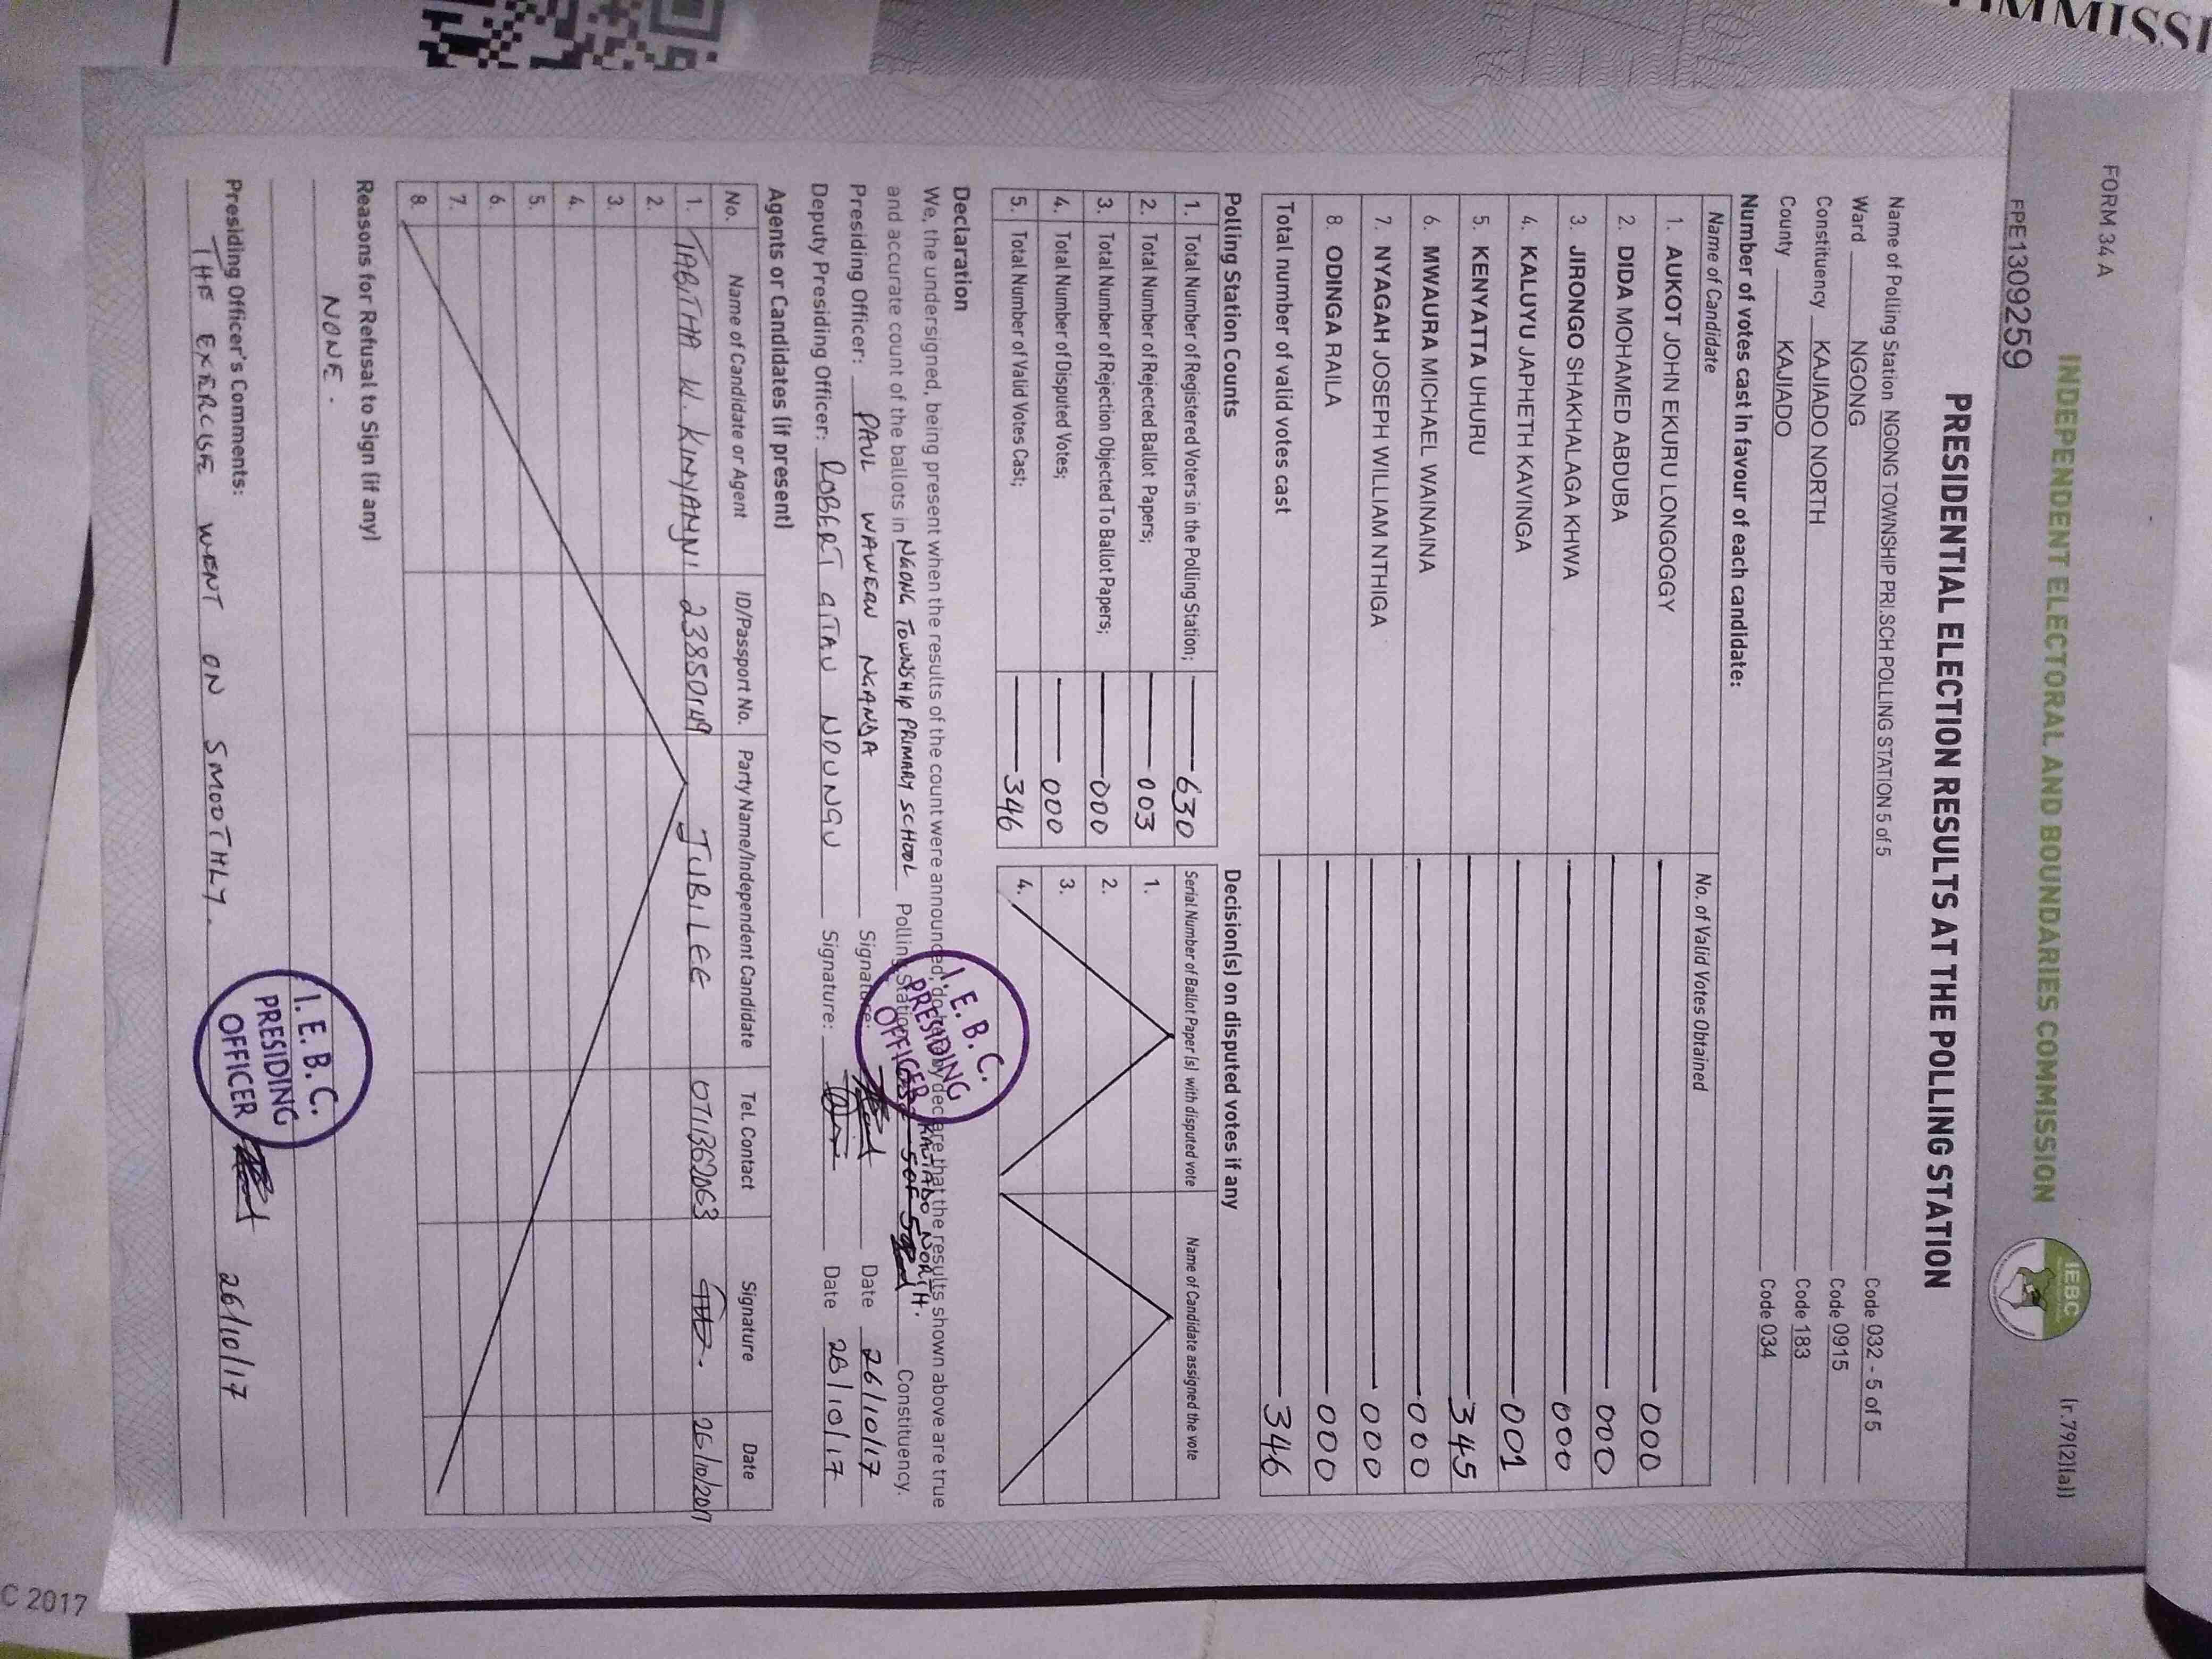 MMISSI
FORM 34 A
INDEPENDENT ELECTORAL AND BOUNDARIES COMMISSION
IEBC
(r.79(2)(a))
FPE1309259
PRESIDENTIAL ELECTION RESULTS AT THE POLLING STATION
Name of Polling Station NGONG TOWNSHIP PRI.SCH POLLING STATION 5 of 5 Code 032 - 5 of 5
Ward NGONG Code 0915
Constituency KAJIADO NORTH Code 183
County KAJIADO Code 034
Number of votes cast in favour of each candidate:
Name of Candidate No. of Valid Votes Obtained
1. AUKOT JOHN EKURU LONGOGGY 000
2. DIDA MOHAMED ABDUBA 000
3. JIRONGO SHAKHALAGA KHWA 000
4. KALUYU JAPHETH KAVINGA 001
5. KENYATTA UHURU 345
6. MWAURA MICHAEL WAINAINA 000
7. NYAGAH JOSEPH WILLIAM NTHIGA 000
8. ODINGA RAILA 000
Total number of valid votes cast 346
Polling Station Counts Decision(s) on disputed votes if any
1. Total Number of Registered Voters in the Polling Station; 630 Serial Number of Ballot Paper (s) with disputed vote Name of Candidate assigned the vote
2. Total Number of Rejected Ballot Papers; 003 1.
3. Total Number of Rejection Objected To Ballot Papers; 000 2.
4. Total Number of Disputed Votes; 000 3.
5. Total Number of Valid Votes Cast; 346 4.
Declaration
We, the undersigned, being present when the results of the count were announced, do hereby declare that the results shown above are true
and accurate count of the ballots in NGONG TOWNSHIP PRIMARY SCHOOL Polling Station KAJIADO NORTH. Constituency.
5 OF 5
I. E. B. C.
PRESIDING
OFFICER
Presiding Officer: PAUL WAWERU NGANGA Signature: Date 26/10/17
Deputy Presiding Officer: ROBERT GITAU NDUNGU Signature: Date 26/10/17
Agents or Candidates (if present)
No. Name of Candidate or Agent ID/Passport No. Party Name/Independent Candidate Tel. Contact Signature Date
1. TABITHA W. KINYANJUI JUBILEE 26/10/2017
2.
3.
4.
5.
6.
7.
8.
Reasons for Refusal to Sign (if any)
NONE.
Presiding Officer's Comments:
THE EXERCISE WENT ON SMOOTHLY.
I. E. B. C.
PRESIDING
OFFICER
26/10/17
C 2017